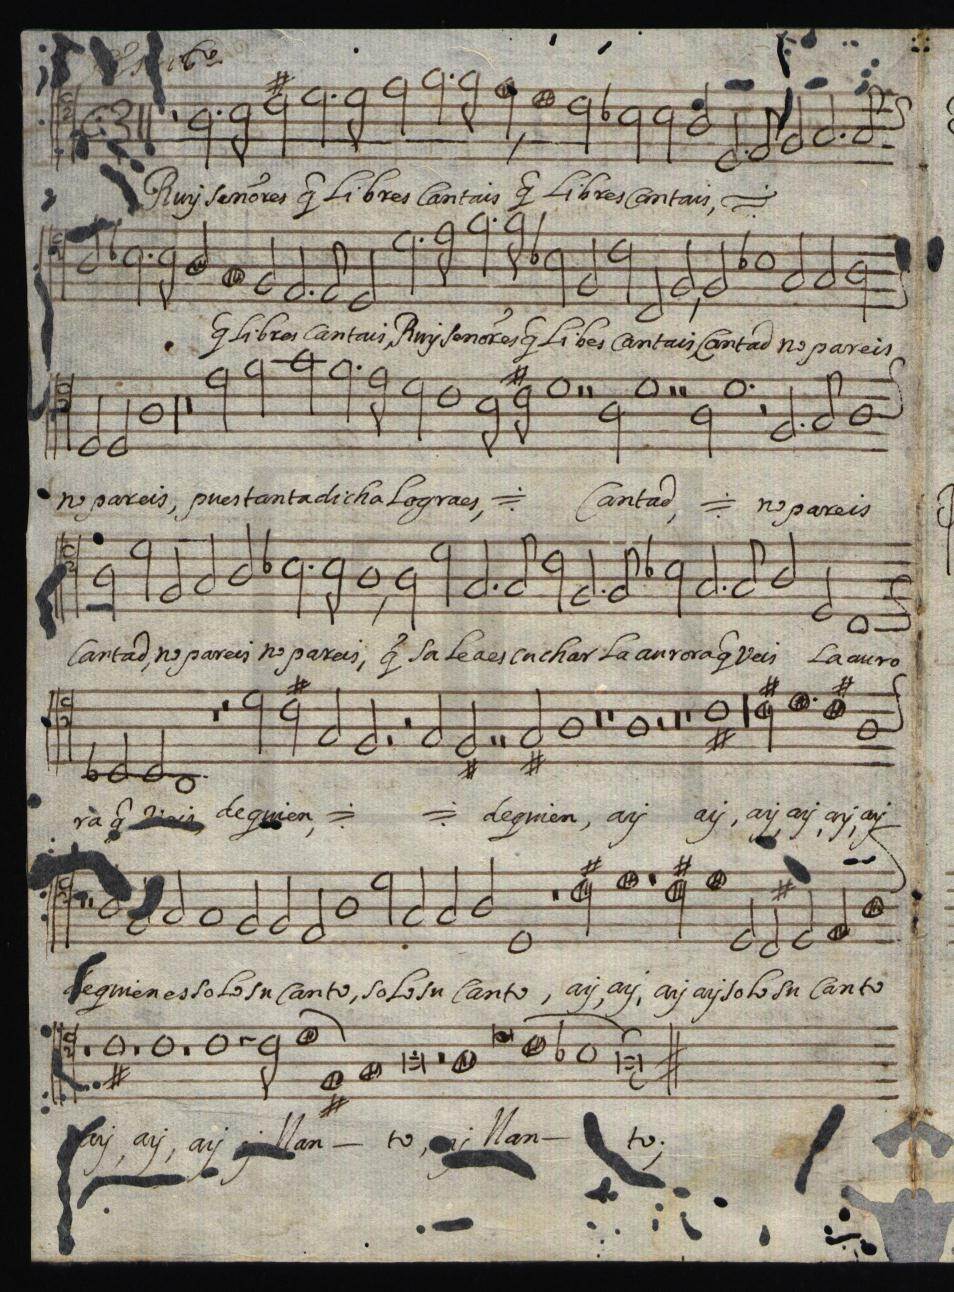 Ruyseñores q̃ libres Cantais q̃ libres Cantais,
q̃ libres Cantais, Ruyseñores q̃ libes Cantais, Cantad no pareis
no pareis, pues tanta dicha lograes, Cantad, no pareis
Cantad, no pareis no pareis, q̃ sale a escuchar la aurora q̃ Veis la auro
ra q̃ Veis, de quien, de quien, ay ay, ay, ay, ay, ay
de quien es solo su Canto, solo su Canto, ay, ay, ay ay solo su Canto
ay, ay, ay llan- to, llan- to,